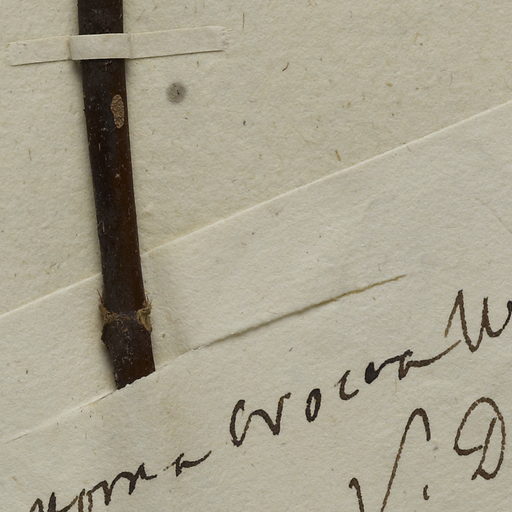 noma crocea W
V. D